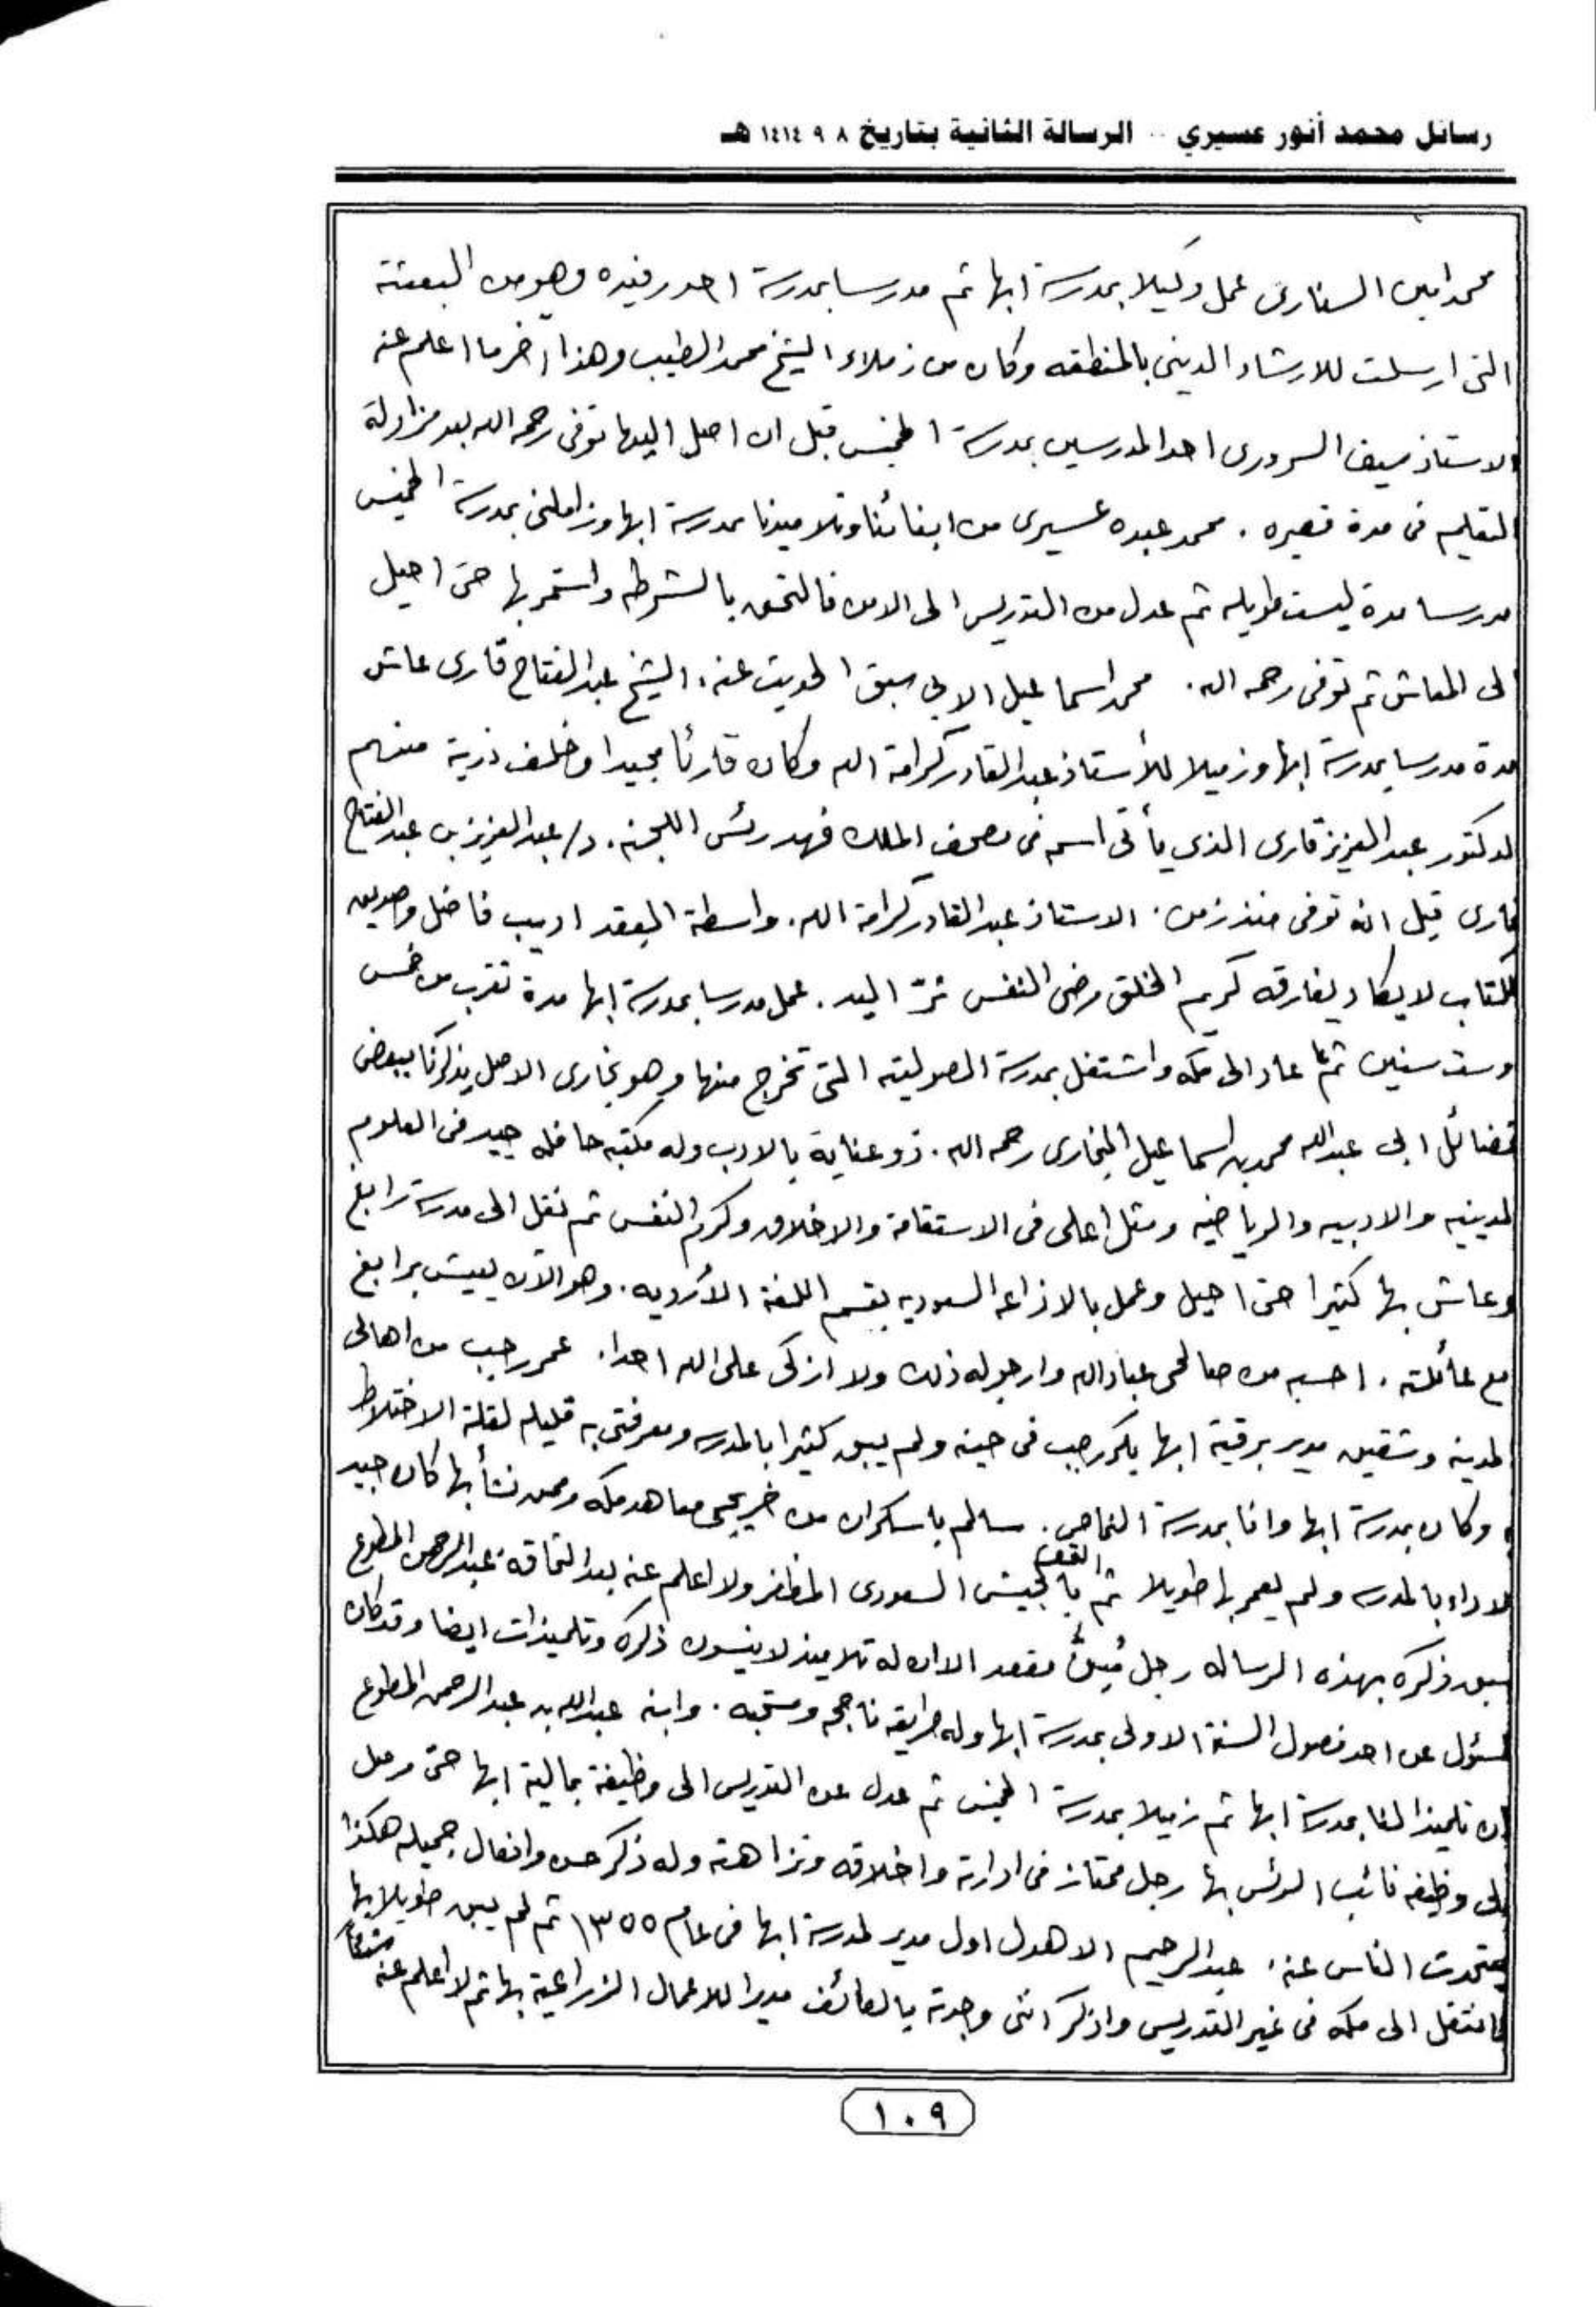 رسائل محمد أنور عسيري .. الرسالة الثانية بتاريخ ٨ ٩ ١٤١٤ هـ
محمد امين السنارى عمل وكيلا بمدرسة ابها ثم مدرسا بمدرسة احد رفيده وهو من البعثة
التى ارسلت للارشاد الدينى بالمنطقه وكان من زملاء الشيخ محمد الطيب وهذا اخر ما اعلم عنه
الاستاذ سيف السرورى احد المدرسين بمدرسة الخميس قبل ان اصل اليها توفى رحمه الله بعد مزاولة
التعليم فى مدة قصيره . محمد عبده عسيرى من ابنائنا وتلاميذنا بمدرسة ابها وزاملنى بمدرسة الخميس
مدرسا مدة ليست طويله ثم عدل من التدريس الى الامن فالتحق بالشرطه واستمر بها حتى احيل
الى المعاش ثم توفى رحمه الله . محمد اسماعيل الابى سبق الحديث عنه . الشيخ عبدالفتاح قارى عاش
مدة مدرسا بمدرسة ابها وزميلا للأستاذ عبدالقادر كرامة الله وكان قارئا مجيدا وخلف ذرية منهم
الدكتور عبدالعزيز قارى الذي يأتى اسمه فى مصحف الملك فهد رئس اللجنه . د/ عبدالعزيز بن عبدالفتاح
قارى قيل انه توفى منذ زمن . الاستاذ عبدالقادر كرامة الله . واسطة العقد اديب فاضل وصديق
للكتاب لا يكاد يفارقه كريم الخلق رضى النفس ثرّ اليد . عمل مدرسا بمدرسة ابها مدة تقرب من خمس
وست سنين ثم عاد الى مكه واشتغل بمدرسة الصولتيه التى تخرج منها وهو بخارى الاصل يذكرنا ببعض
فضائل ابى عبدالله محمد بن اسماعيل البخارى رحمه الله . ذو عناية بالادب وله مكتبه حافله جيد فى العلوم
الدينيه والادبيه والرياضيه ومثل اعلى فى الاستقامة والاخلاق وكرم النفس ثم نقل الى مدرسة رابغ
وعاش بها كثيرا حتى احيل وعمل بالاذاعه السعوديه بقسم اللغة الأرديه . وهو الآن يعيش برابغ
مع عائلته . احسبه من صالحى عباد الله وارجو له ذلك ولا ازكى على الله احدا . عمر رجب من اهالى
المدينه وشقيق مدير برقية ابها بكر رجب فى حينه ولم يبق كثيرا بالمدرسه ومعرفتى به قليله لقلة الاختلاط
وكان بمدرسة ابها وانا بمدرسة النماص . سالم باسكران من خريجى معاهد مكه وممن نشأ بها كان جيد
الاداء بالمدرسه ولم يعمر بها طويلا ثم التحق بالجيش السعودى المظفر ولا اعلم عنه بعد التحاقه . عبدالرحمن المطوع
سبق ذكره بهذه الرساله رجل مقعد الا ان له تلاميذ لا ينسون ذكره وتلميذات ايضا وقد كان
مسئول عن احد فصول السنة الاولى بمدرسة ابها وله طرايقه ناجحه ومتجبه . وابنه عبدالله بن عبدالرحمن المطوع
كان تلميذا لنا بمدرسة ابها ثم زميلا بمدرسة الخميس ثم عدل عن التدريس الى وظيفة بمالية ابها حتى وصل
الى وظيفه نائب الرئس بها رجل ممتاز فى ادارته واخلاقه ونزاهته وله ذكر حسن وافعال جميله هكذا
يتحدث الناس عنه . عبدالرحيم الاهدل اول مدير لمدرسة ابها فى عام ١٣٥٥ ثم لم يبق طويلا بها
فانتقل الى مكه فى غير التدريس واذكر اننى وجدته بالطائف مديرا للاعمال الزراعية بها ثم لا اعلم عنه شيئا
١٠٩